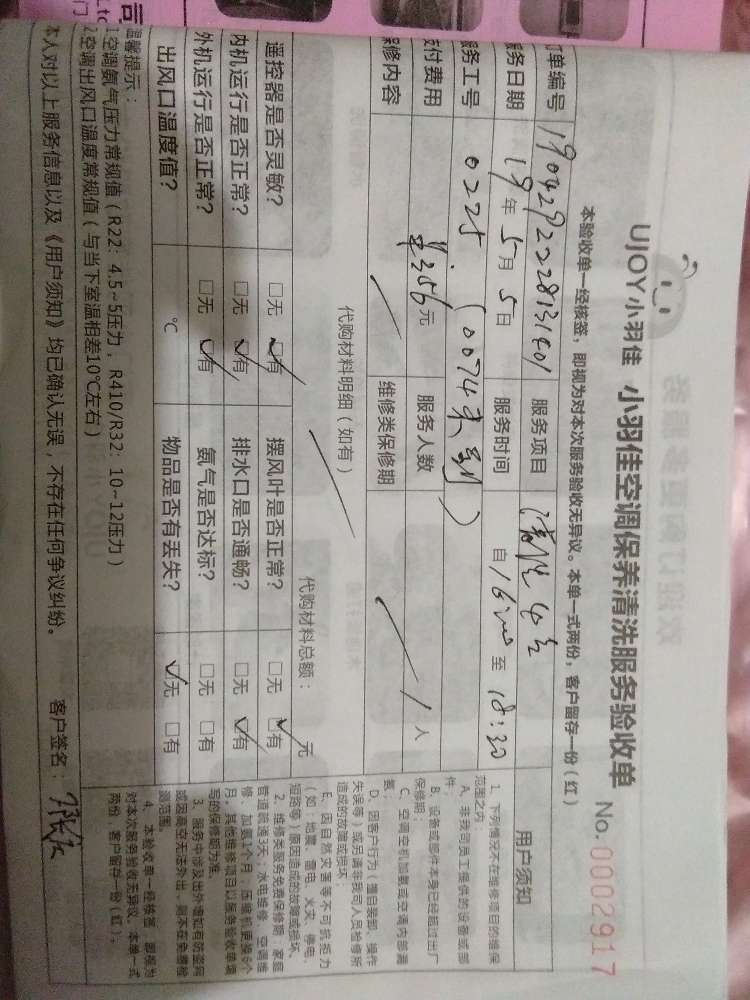 UJOY小羽佳 小羽佳空调保养清洗服务验收单
No. 0002917
本验收单一经核签，即视为对本次服务验收无异议。本单一式两份，客户留存一份（红）
订单编号 1904292228131401 服务项目
服务日期 19年5月5日 服务时间 自 至 18:30
服务工号 0225
支付费用 ¥356元 服务人数 1人
保修内容 维修类保修期
代购材料明细（如有） 代购材料总额： 元
遥控器是否灵敏？ □无 ☑有 摆风叶是否正常？ □无 ☑有
内机运行是否正常？ □无 ☑有 排水口是否通畅？ □无 ☑有
外机运行是否正常？ □无 ☑有 氨气是否达标？ □无 □有
出风口温度值？ ℃ 物品是否有丢失？ ☑无 □有
温馨提示：
1空调氨气压力常规值（R22：4.5~5压力，R410/R32：10~12压力）
2空调出风口温度常规值（与当下室温相差10℃左右）
本人对以上服务信息以及《用户须知》均已确认无误，不存在任何争议纠纷。 客户签名：
用户须知
1、下列情况不在维修项目的维保
范围之内：
A、非我司员工提供的设备或部
件；
B、设备或部件本身已经超过出厂
保修期；
C、空调空机加氨或空调内部漏
氨；
D、因客户行为（擅自装卸、操作
失误等）或另请非我司人员检修所
造成的故障或损坏；
E、因自然灾害等不可抗拒力
（如：地震、雷电、火灾、停电、
短路等）原因造成的故障或损坏。
2、维修类服务免费保修期：家庭
管道疏通3天；水电维修、空调维
修、加氨1个月，压缩机更换6个
月，其他维修项目以服务验收单填
写的保修期为准。
3、服务中涉及出外墙如有防盗网
或因高空无法外出，则不在免费检
测范围。
4、本验收单一经核签，即视为
对本次服务验收无异议，本单一式
两份，客户留存一份（红）。